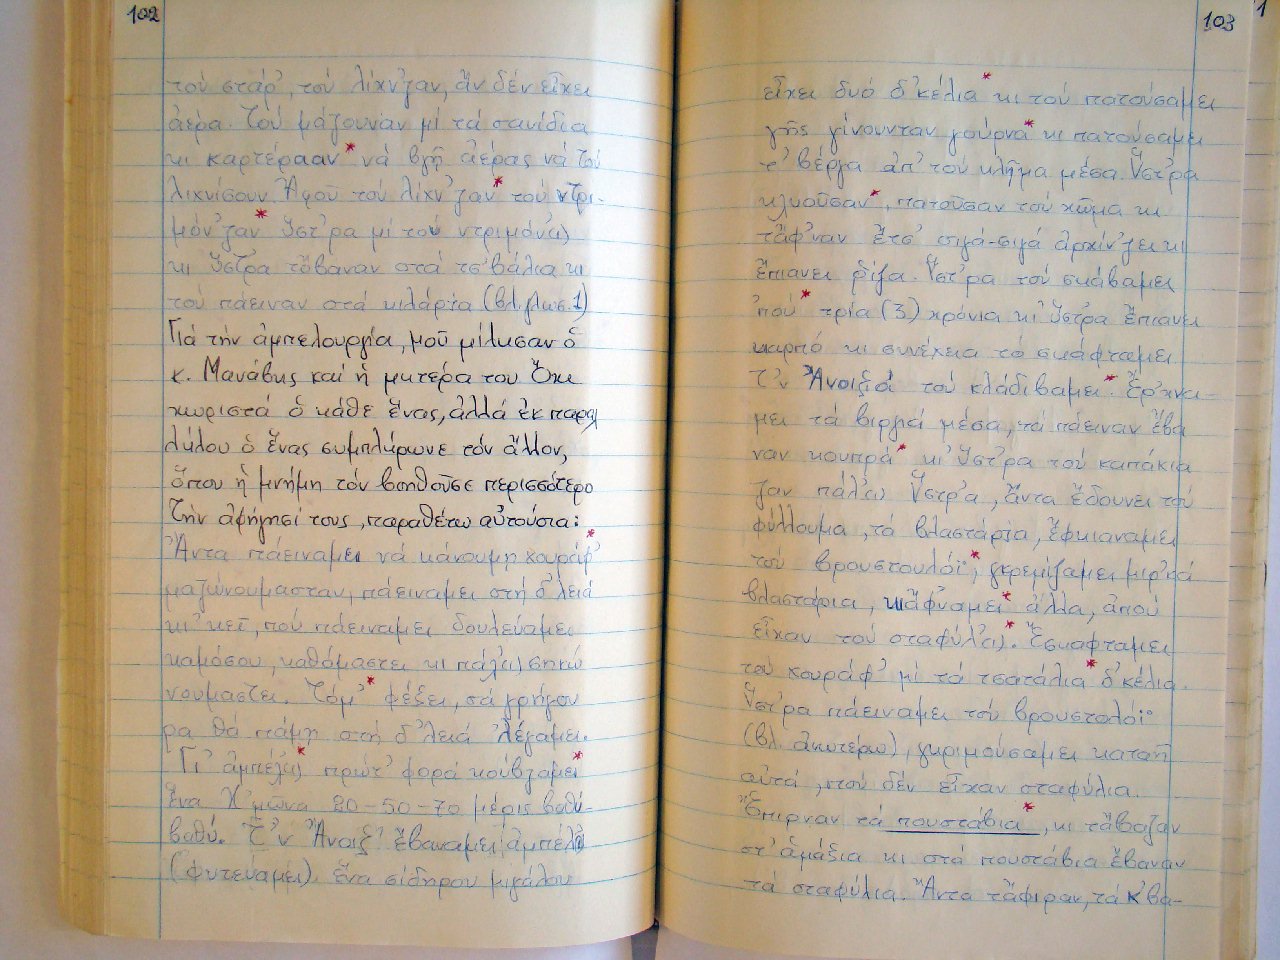 102
τού στάρ', τού λίχν'ζαν, ἄν δέν εἶχει
ἀέρα. Τού μάζουναν μί τά σανίδια
κι καρτέρααν* νά βγῆ ἀέρας νά τού
λιχνίσουν. Ἀφοῦ τού λίχν'ζαν* τού ντρι-
μόν'ζαν* ὕστ'ρα μί τού ντριμόν(ι)
κι ὕστ'ρα τὄβαναν στά τσ'βάλια κι
τού πάειναν στά κιλάρια (βλ. γλωσ. 1)
Γιά τήν ἀμπελουργία, μοῦ μίλησαν ὁ
κ. Μανάβης καί ἡ μητέρα του. Ὄχι
χωριστά ὁ κάθε ἕνας, ἀλλά ἐκ παραλ
λήλου ὁ ἕνας συμπλήρωνε τόν ἄλλον,
ὅπου ἡ μνήμη τόν βοηθοῦσε περισσότερο
Τήν ἀφήγησί τους, παραθέτω αὐτούσια:
Ἄντα πάειναμει νά κάνουμη χουράφ'*
μαζώνουμασταν, πάειναμει στή δ'λειά
κι' κεῖ, πού πάειναμει δουλεύαμει
καμόσου, καθόμαστει κι πάλ(ι) σηκώ
νουμαστει. Τόμ'* φέξει, τά γρήγου
ρα θά πάμη στή δ'λειά λέγαμει.
Γι' ἀμπέλ(ι)* πρώτ' φορά κόυβγαμει*
ἕνα Χ'μῶνα 20-50-70 μέρις βαθύ-
βαθύ. Τ'ν Ἄνοιξ' ἔβαναμει ἀμπέλι
(φυτεύαμει). ἕνα σίδηρου μιγάλου
103
εἶχει δυό δ'κέλια* κι τού πατούσαμει
γῆς γίνουνταν γούρνα* κι πατούσαμει
τ' βέργα ἀπ' τού κλῆμα μέσα. Ὕστ'ρα
κλνοῦσαν*, πατοῦσαν τού χῶμα κι
τἄφ'ναν ἔτσ' σιγά-σιγά ἀρχίν'ζει κι
ἔπιανει ρίζα. Ὕστ'ρα τού σκάβαμει
'πού* τρία (3) χρόνια κι' ὕστ'ρα ἔπιανει
καρπό κι συνέχεια τό σκάφταμει
Τ'ν Ἄνοιξ' τού κλάδιβαμει*. Ἔρ'χνα-
μει τά βιργιά μέσα, τά πάειναν ἔβα
ναν κουπρά* κι' ὕστ'ρα τού καπάκια
ζαν πάλ'(ι) Ὕστρ'α, ἄντα ἔδουνει τού
φύλλουμα, τά βλαστάρια, ἔφκιαναμει
τού βρουστουλόϊ*, γκρεμίζαμει μιρ'κά
βλαστάρια, κι ἄφ'ναμει* ἄλλα, ἀπού
εἶχαν τού σταφύλ'(ι)*. Ἔσκαφταμει
τού χουράφ' μί τά τσατάλια* δ'κέλια.
Ὕστ'ρα πάειναμει τού βρουστολόϊ
(βλ. ἀνωτέρω), γκριμούσαμει καταῆ
αὐτά, πού δέν εἶχαν σταφύλια.
Ἔπιρναν τά πουστάβια*, κι τἄβαζαν
στ' ἁμάξια κι στά πουστάβια ἔβαναν
τά σταφύλια. Ἄντα τἄφιραν, τά κ'βα-
1